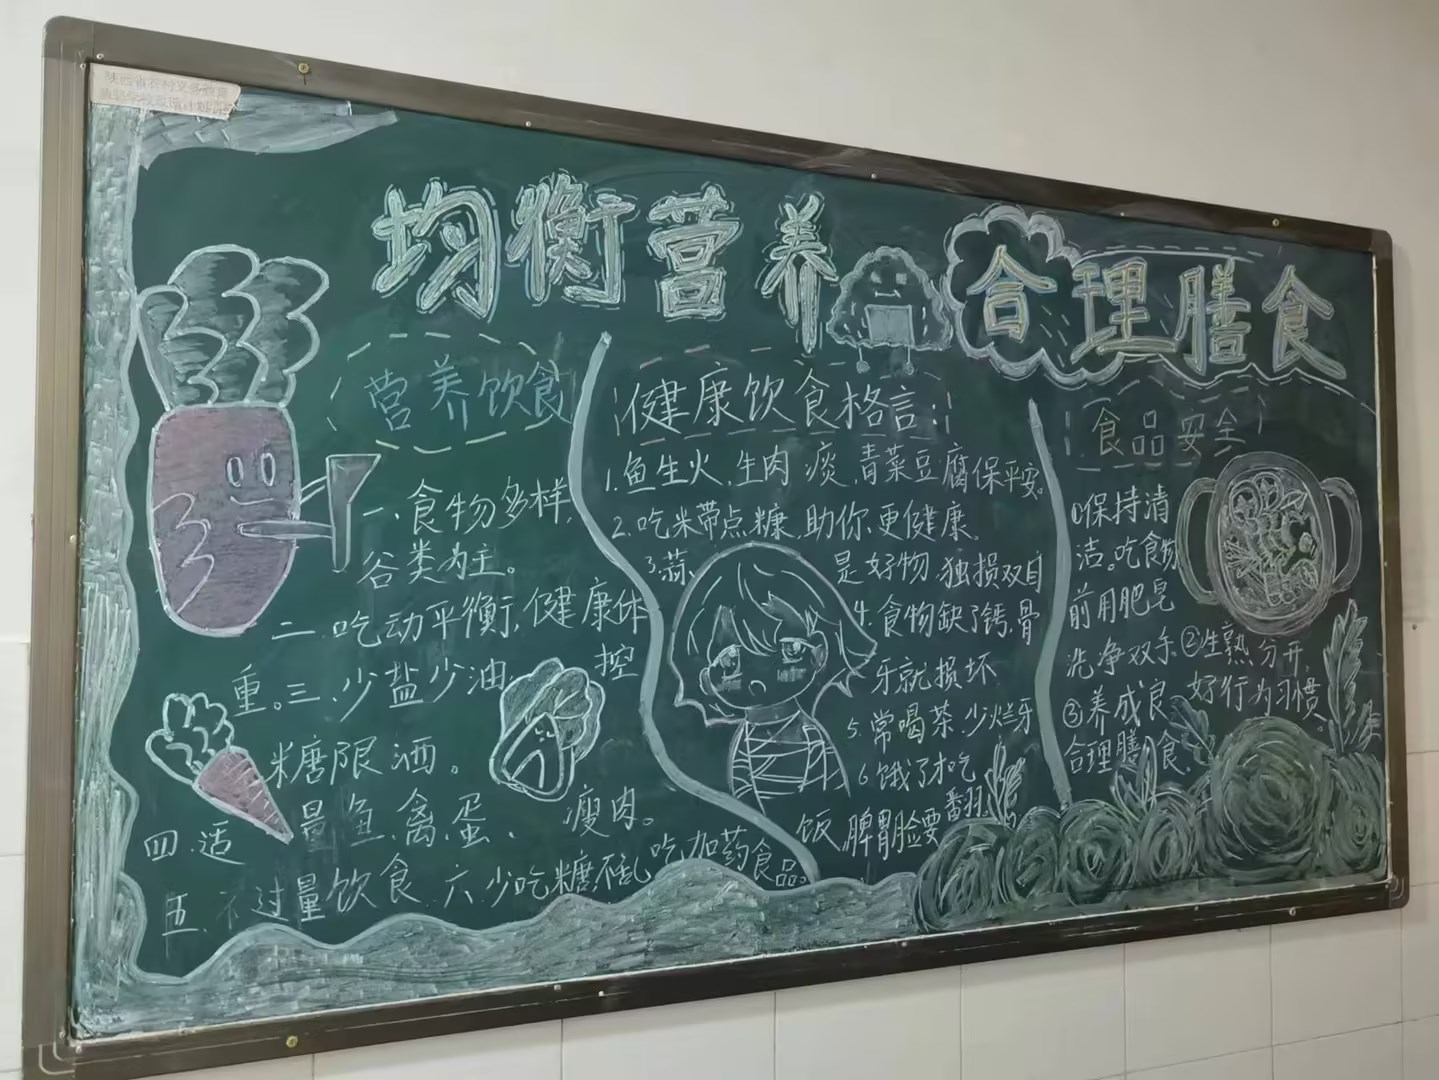 均衡营养
合理膳食
营养饮食
一、食物多样,
谷类为主。
二.吃动平衡,健康体
重。三.少盐少油 控
糖限酒。
四.适量鱼、禽、蛋、瘦肉。
五.不过量饮食.六.少吃糖,不乱吃加药食品。
健康饮食格言:
1.鱼生火,生肉痰,青菜豆腐保平安。
2.吃米带点糠,助你更健康。
3.蒜是好物,独损双目
4.食物缺了钙,骨
牙就损坏
5.常喝茶.少烂牙
6饿了才吃
饭,脾胃脸要翻。
食品安全
①保持清
洁。吃食物
前用肥皂
洗净双手②生熟分开,
③养成良好行为习惯。
合理膳食。